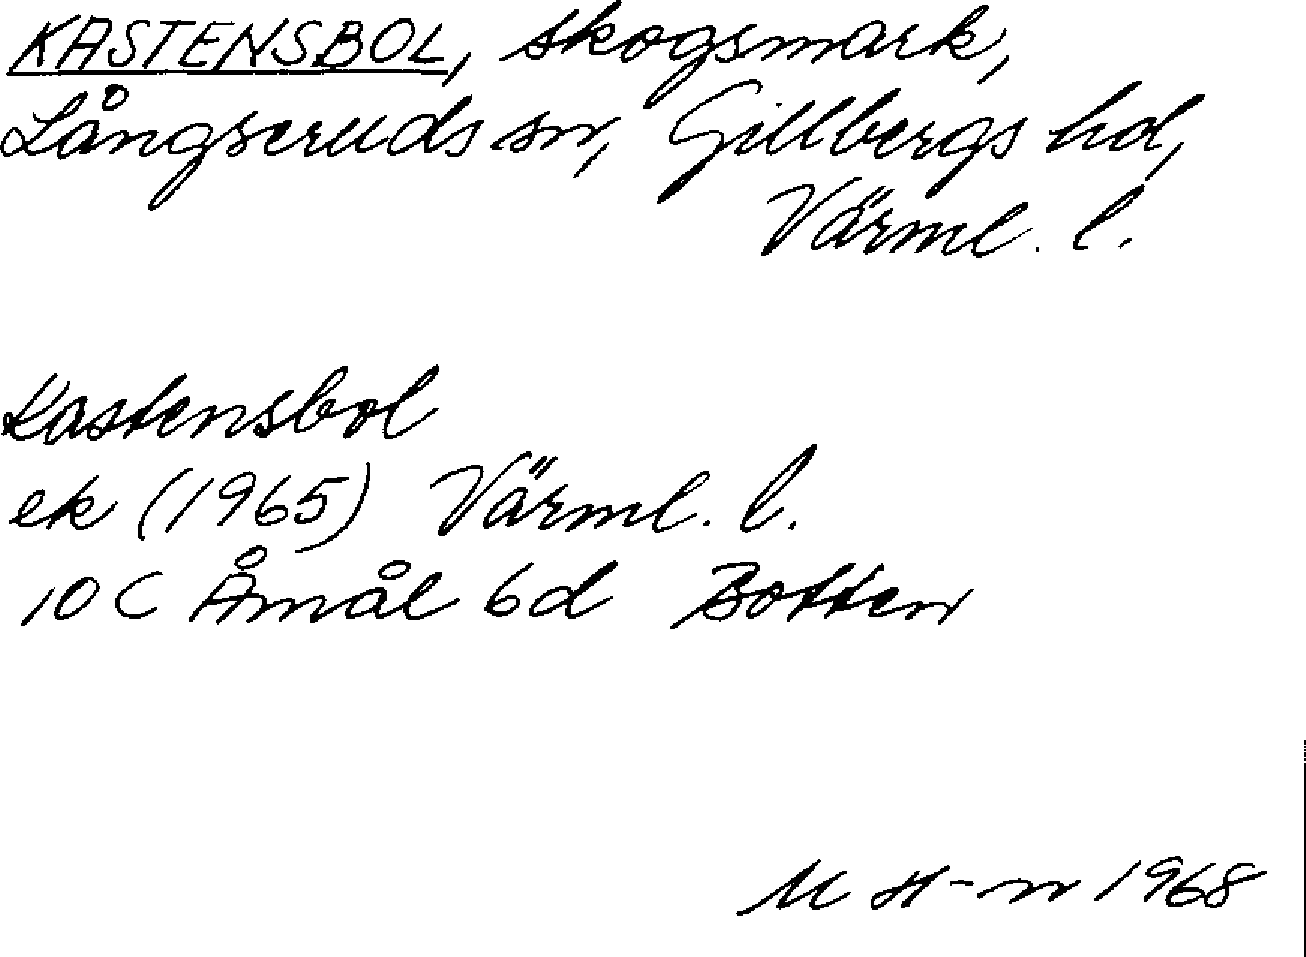 KASTENSBOL, skogsmark,
Långseruds sn, Gillbergs hd,
Värml. l.
Kastensbol
ek (1965) Värml. l.
10 C Åmål 6d Botten
M H-n 1968